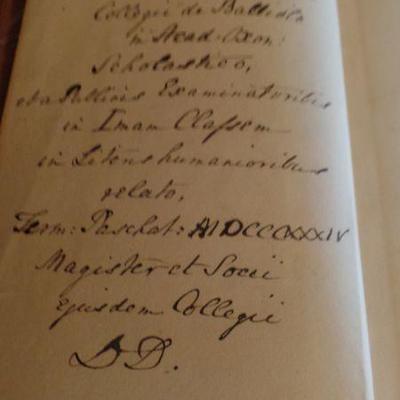 Collegii de Balliolo
in Acad. Oxon:
Scholastico,
et a Publicis Examinatoribus
in Imam Classem
in Literis humanioribus
relato,
Term: Paschat: MDCCCXXXIV
Magister et Socii
ejusdem Collegii
D D.